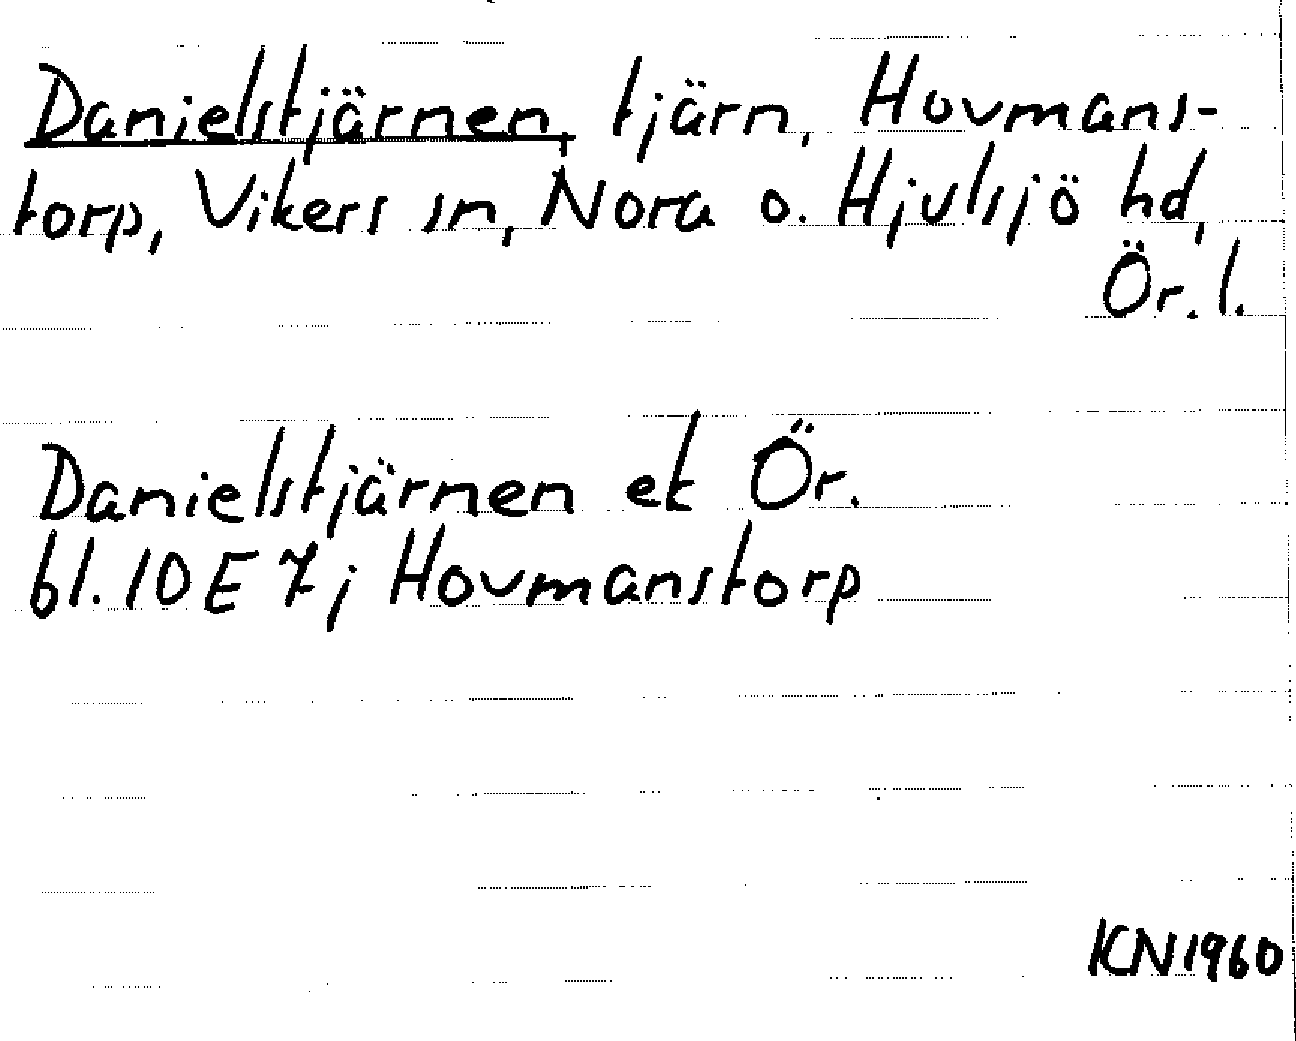 Danielstjärnen, tjärn, Hovmans-
torp, Vikers sn, Nora o. Hjulsjö hd,
Ör. l.
Danielstjärnen ek Ör.
bl. 10E 7j Hovmanstorp
KN1960